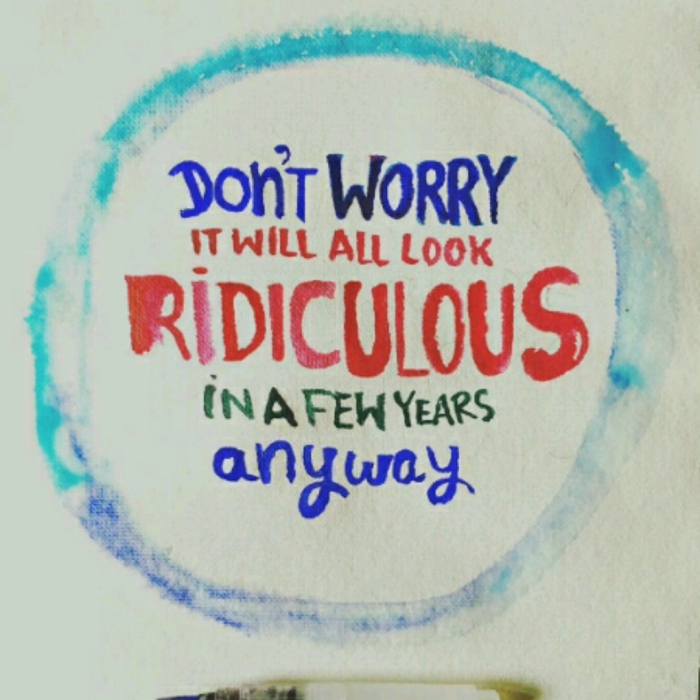 DON'T WORRY
IT WILL ALL LOOK
RiDICULOUS
iN A FEW YEARS
anyway